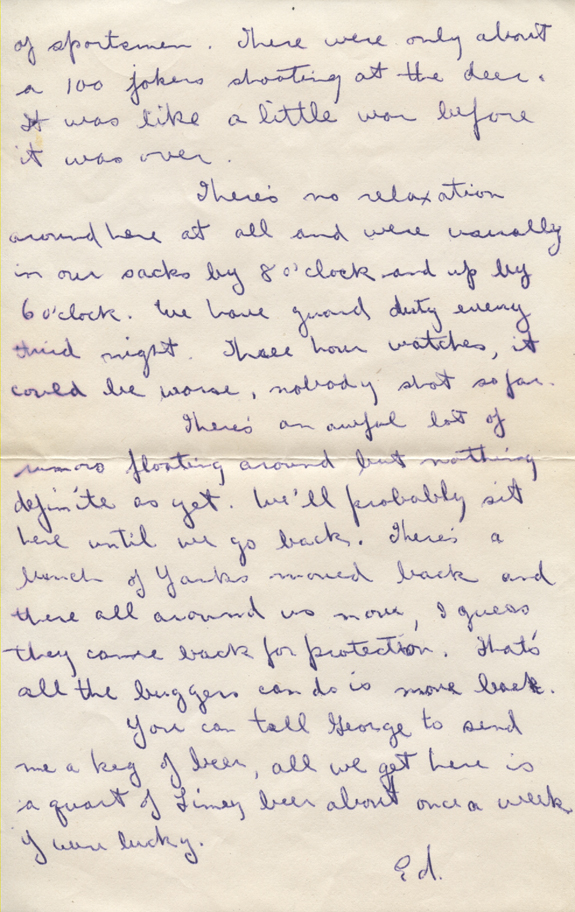 of sportsmen. There were only about
a 100 jokers shooting at the deer.
It was like a little war before
it was over.
There's no relaxation
around here at all and were usually
in our sacks by 8 o'clock and up by
6 o'clock. We have guard duty every
third night. Three hour watches, it
could be worse, nobody shot so far.
There's an awful lot of
rumors floating around but nothing
definite as yet. We'll probably sit
here until we go back. There's a
bunch of Yanks moved back and
there all around us now, I guess
they came back for protection. That's
all the buggers can do is move back.
You can tell George to send
me a keg of beer, all we get here is
a quart of Limey beer about once a week
if were lucky.
Ed.